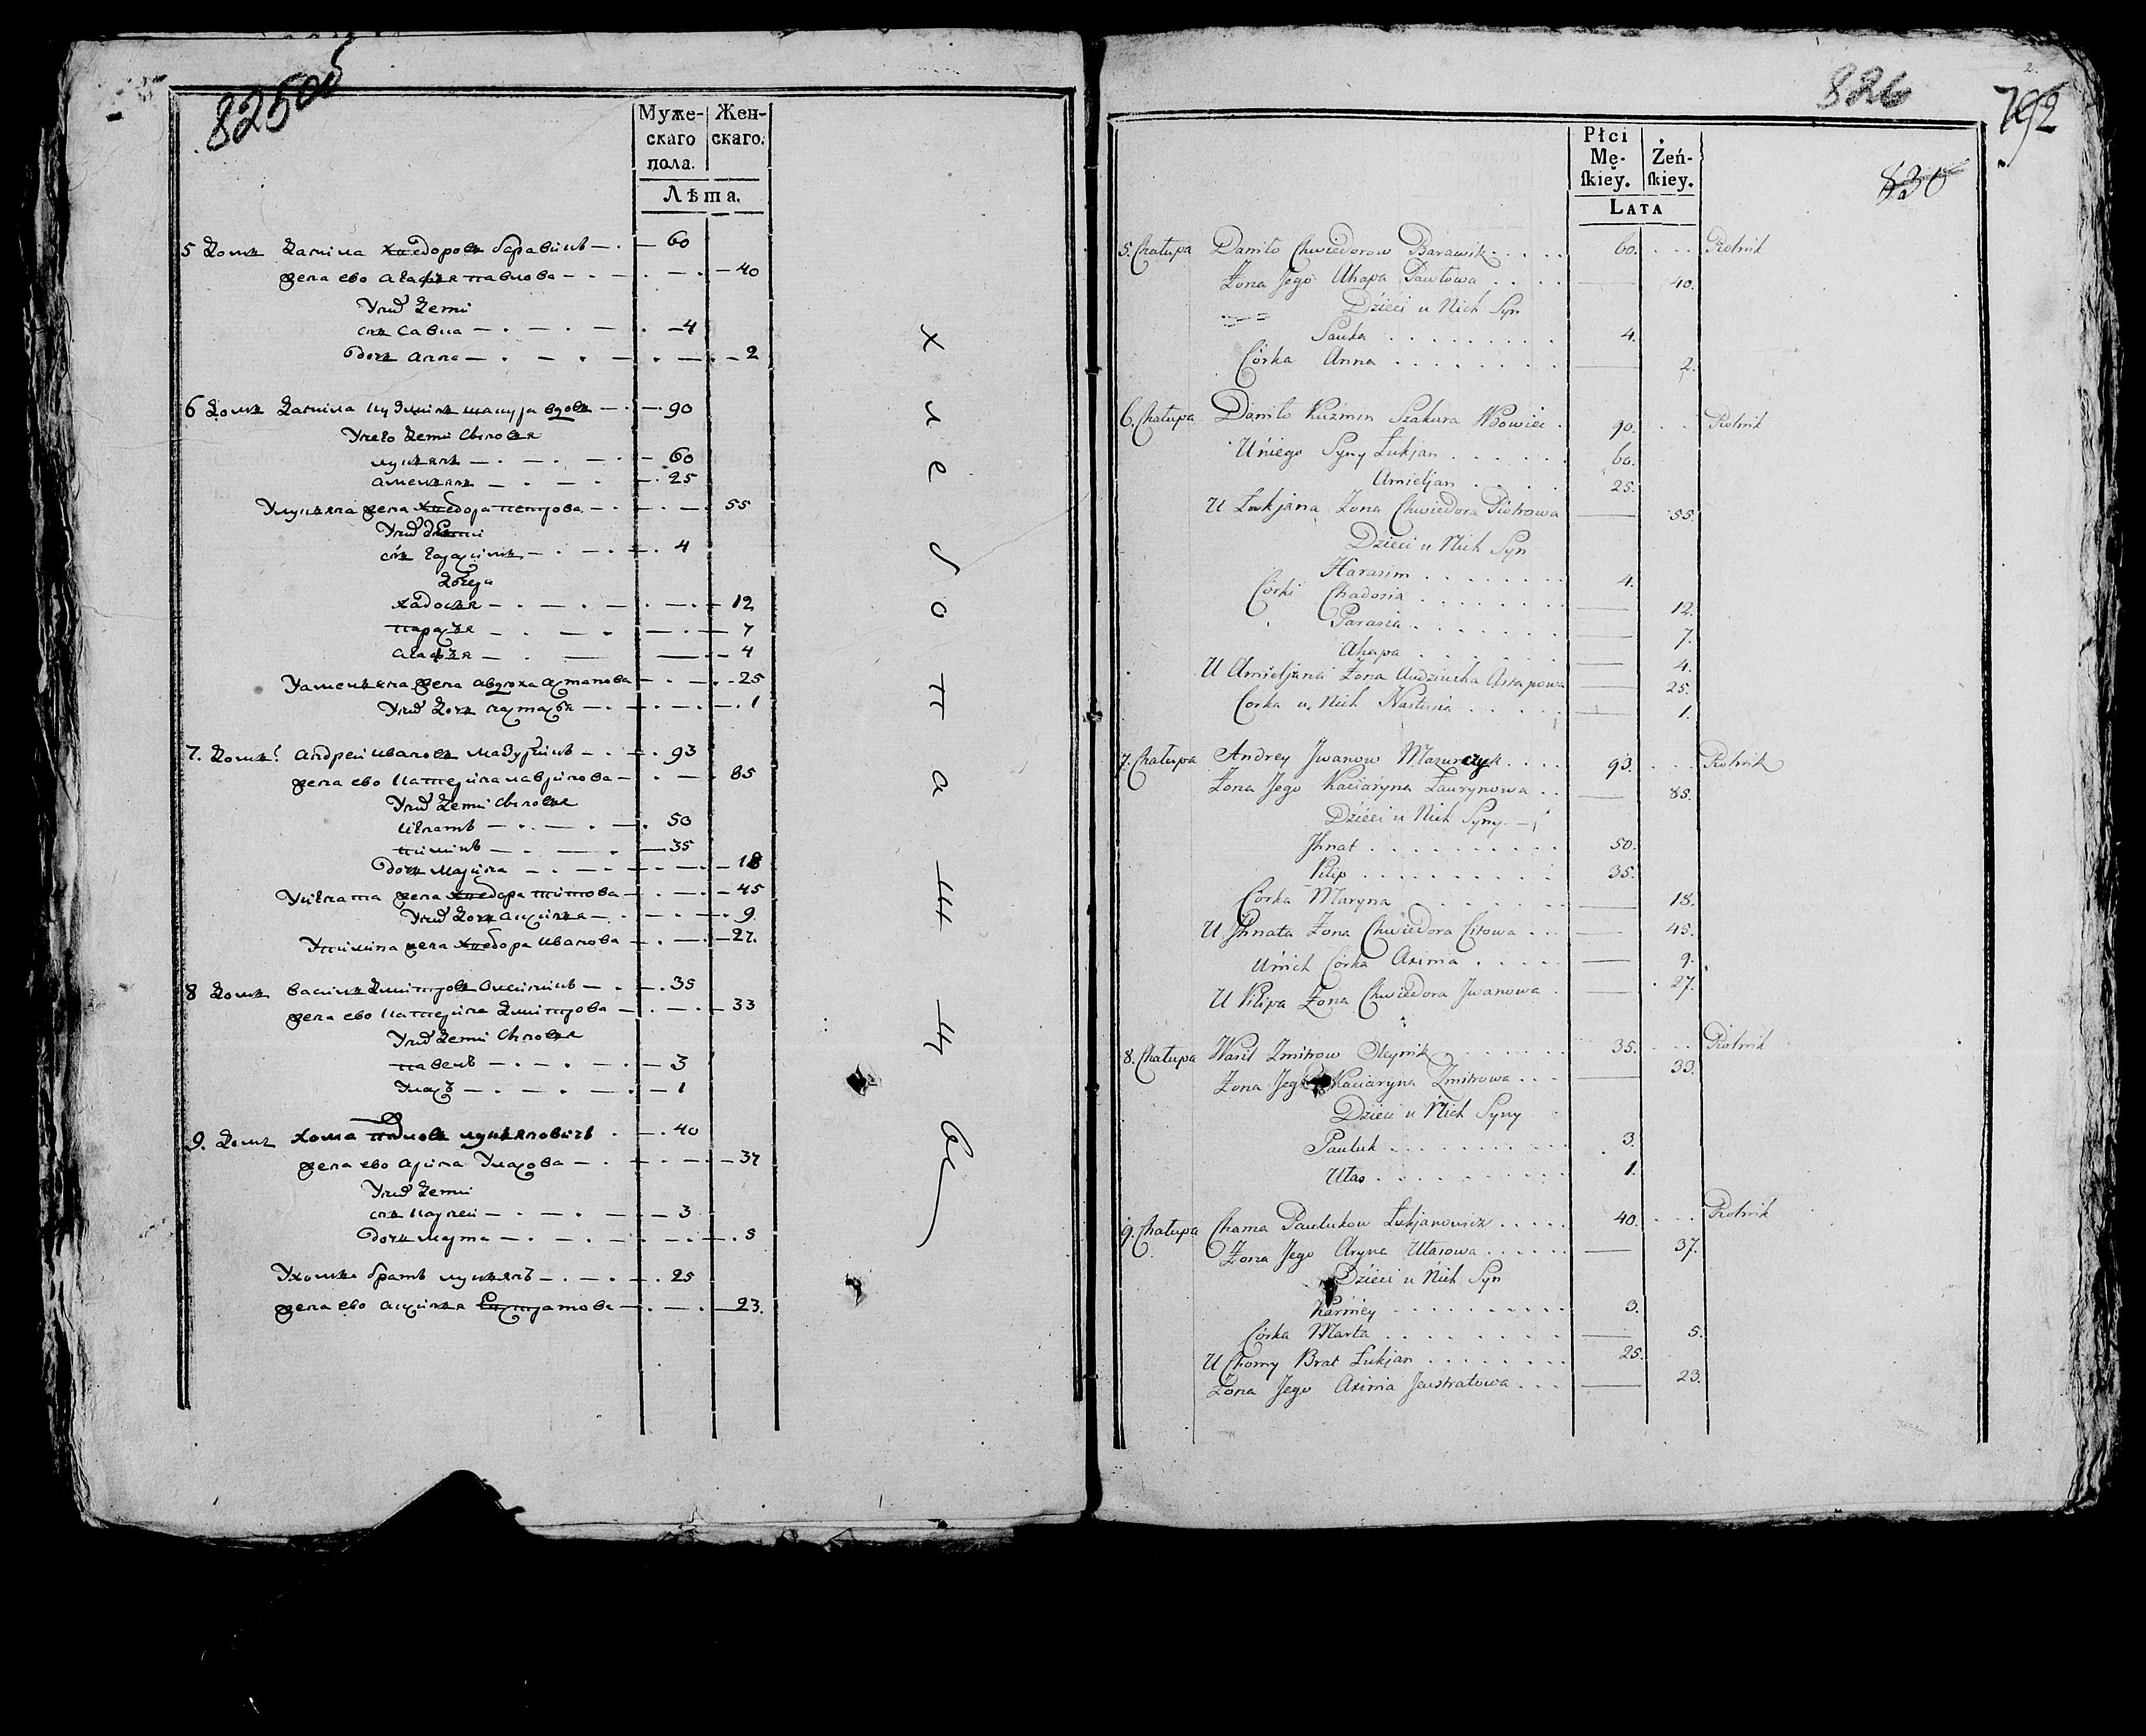 825 об
Муже- Жен-
скаго скаго.
пола.
Лѣта.
5 Домъ Данила Хведоровъ боравикъ 60
жена ево Агафѣя павлова 40
У них дети
снъ Савка 4
дочь Анна 2
6 Домъ Данила Кузминъ шакура вдовъ 90
У него дети сыновья
лукьянъ 60
Амельянъ 25
У лукьяна жена хведора петрова 55
У них дети
снъ гарасимъ 4
дочери
хадосья 12
парасья 7
Агафья 4
У амельяна жена авдюха астапова 25
У них дочь настасья 1
7. Домъ Андрей ивановъ мазурчикъ 93
жена ево катерина лавринова 85
У них дети сыновья
игнатъ 50
пилипъ 35
дочь марина 18
У игната жена хведора титова 45
У них дочь аксинья 9
У пилипа жена хведора иванова 27.
8 Домъ василь Дмитровъ алейникъ 35
жена ево катерина Дмитрова 33
У них дети сыновья
павелъ 3
Уласъ 1
9. Домъ хома лукьяновичъ 40
жена ево арина Уласова 37
У них дети
снъ карней 3
дочь марта 5
У хомы братъ лукьянъ 25
жена ево аксинья Евстратова 23.
826
2.
792
830
Płci
Mę- Żeń-
skiey. skiey.
LATA
5. Chałupa Daniło Chwiedorow Barawik 60. Rolnik
Żona Jego Ahapa Pawłowa 40.
Dzieci u Nich Syn
Sauka 4.
Córka Anna 2.
6. Chałupa Daniło Kuźmin Szakura Wdowiec 90. Rolnik
U niego Syny Łukjan 60.
Amieljan 25.
U Łukjana Żona Chwiedora Piotrowa 55.
Dzieci u Nich Syn
Harasim 4.
Córki Chadosia 12.
Parasia 7.
Ahapa 4.
U Amieljana Żona Audziucha Astapowa 25.
Corka u Nich Nastusia 1.
7. Chałupa Andrey Jwanow Mazurczyk 93. Rolnik
Żona Jego Kaciaryna Łaurynowa 85.
Dzieci u Nich Syny
Jhnat 50.
Pilip 35.
Córka Maryna 18.
U Jhnata Żona Chwiedora Citowa 45.
U nich Córka Axinia 9.
U Pilipa Żona Chwiedora Jwanowa 27.
8. Chałupa Wasil Zmitrow Oleynik 35. Rolnik
Żona Jego Kaciaryna Zmitrowa 33.
Dzieci u Nich Syny
Pauluk 3.
Ułas 1.
9. Chałupa Chama Paulukow Łukjanowicz 40. Rolnik
Żona Jego Aryna Ułasowa 37.
Dzieci u Nich Syn
Karniey 3.
Córka Marta 5.
U Chomy Brat Łukjan 25.
Żona Jego Axinia Jeustratowa 23.